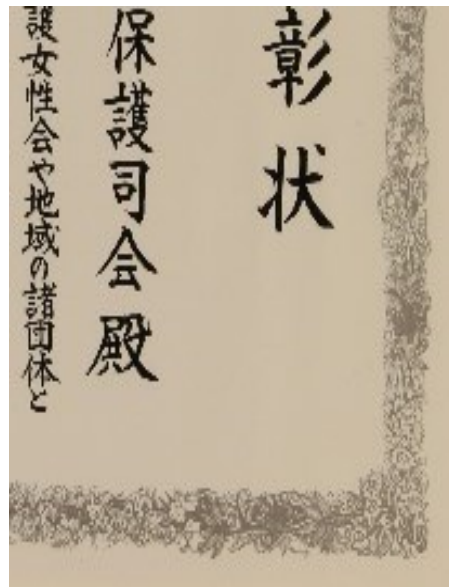 彰状
保護司会殿
護女性会や地域の諸団体と